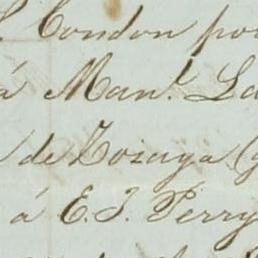 London por
á Man.l La
de Zozaya (y
á E. J. Perry